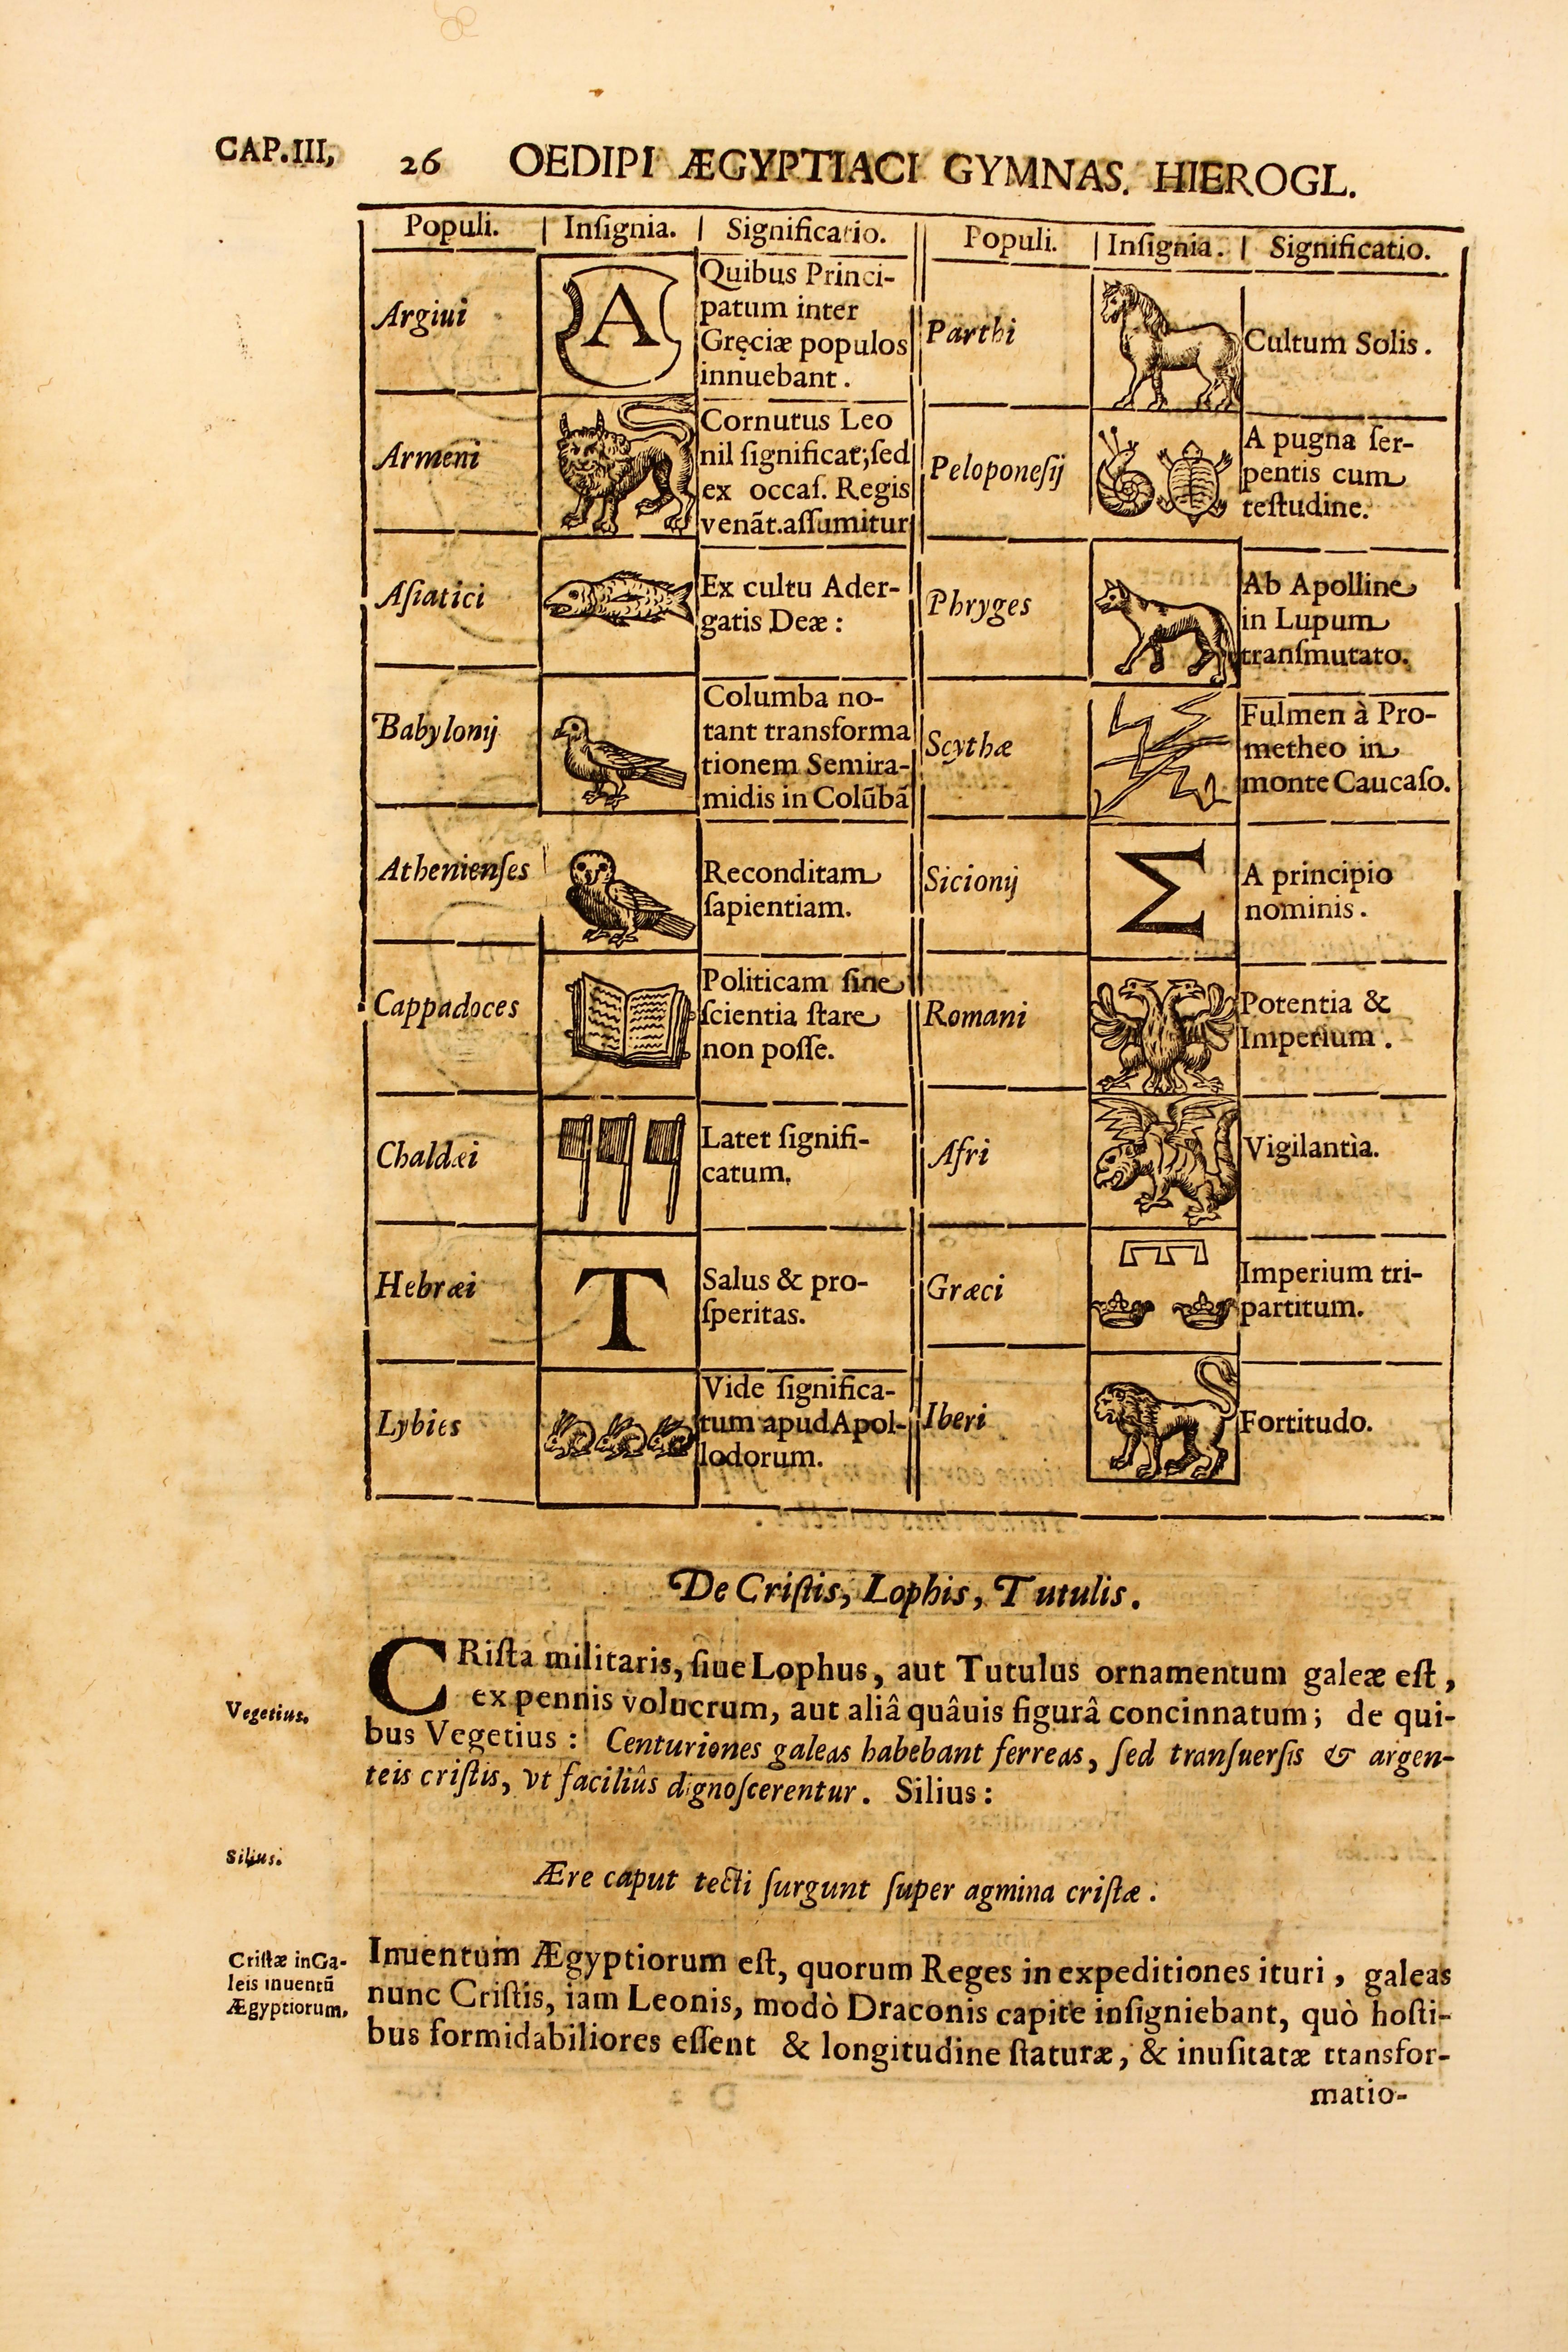 CAP.III, 26 OEDIPI ÆGYPTIACI GYMNAS. HIEROGL.
Populi. | Inſignia. | Significatio.
Argiui
A
Quibus Princi-
patum inter
Gręciæ populos
innuebant.
Armeni
Cornutus Leo
nil ſignificat; ſed
ex occaſ. Regis
venãt. aſſumitur
Aſiatici
Ex cultu Ader-
gatis Deæ:
Babylonij
Columba no-
tant transforma
tionem Semira-
midis in Colũbã
Athenienſes
Reconditam
ſapientiam.
Cappadoces
Politicam ſine
ſcientia ſtare
non poſſe.
Chaldæi
Latet ſignifi-
catum.
Hebræi
T
Salus & pro-
ſperitas.
Lybies
Vide ſignifica-
tum apud Apol-
lodorum.
Populi. | Inſignia. | Significatio.
Parthi
Cultum Solis.
Peloponeſij
A pugna ſer-
pentis cum
teſtudine.
Phryges
Ab Apolline
in Lupum
tranſmutato.
Scythæ
Fulmen à Pro-
metheo in
monte Caucaſo.
Sicionij
Σ
A principio
nominis.
Romani
Potentia &
Imperium.
Afri
Vigilantìa.
Græci
Imperium tri-
partitum.
Iberi
Fortitudo.
De Criſtis, Lophis, Tutulis.
CRiſta militaris, ſiue Lophus, aut Tutulus ornamentum galeæ eſt,
ex pennis volucrum, aut aliâ quâuis figurâ concinnatum; de qui-
Vegetius.
bus Vegetius: Centuriones galeas habebant ferreas, ſed tranſuerſis & argen-
teis criſtis, vt faciliûs dignoſcerentur. Silius:
Silius.
Ære caput tecti ſurgunt ſuper agmina criſtæ.
Criſtæ in Ga-
leis inuentũ
Ægyptiorum.
Inuentum Ægyptiorum eſt, quorum Reges in expeditiones ituri, galeas
nunc Criſtis, iam Leonis, modò Draconis capite inſigniebant, quò hoſti-
bus formidabiliores eſſent & longitudine ſtaturæ, & inuſitatæ transfor-
matio-